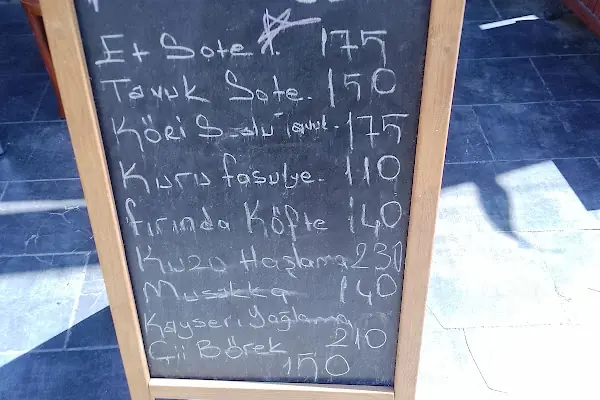 Et Sote 175
Tavuk Sote. 150
Köri Soslu Tavuk. 175
Kuru fasulye. 110
fırında Köfte 140
Kuzu Haşlama 230
Musakka 140
Kayseri Yağlama
210
Çii Börek
150